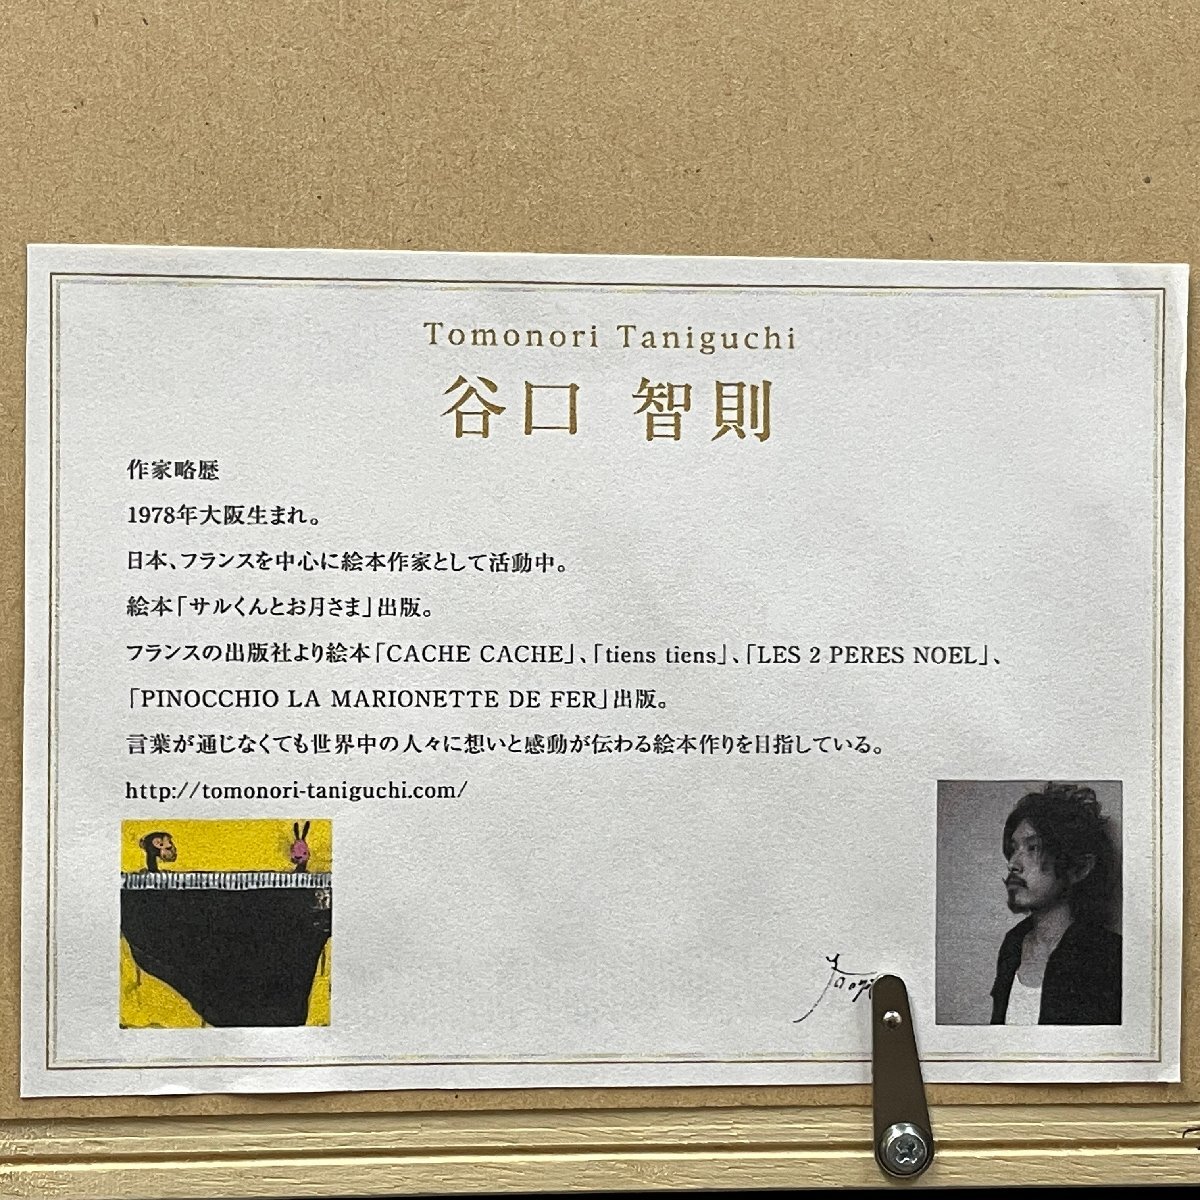 Tomonori Taniguchi
谷口 智則
作家略歴
1978年大阪生まれ。
日本、フランスを中心に絵本作家として活動中。
絵本「サルくんとお月さま」出版。
フランスの出版社より絵本「CACHE CACHE」、「tiens tiens」、「LES 2 PERES NOEL」、
「PINOCCHIO LA MARIONETTE DE FER」出版。
言葉が通じなくても世界中の人々に想いと感動が伝わる絵本作りを目指している。
http://tomonori-taniguchi.com/